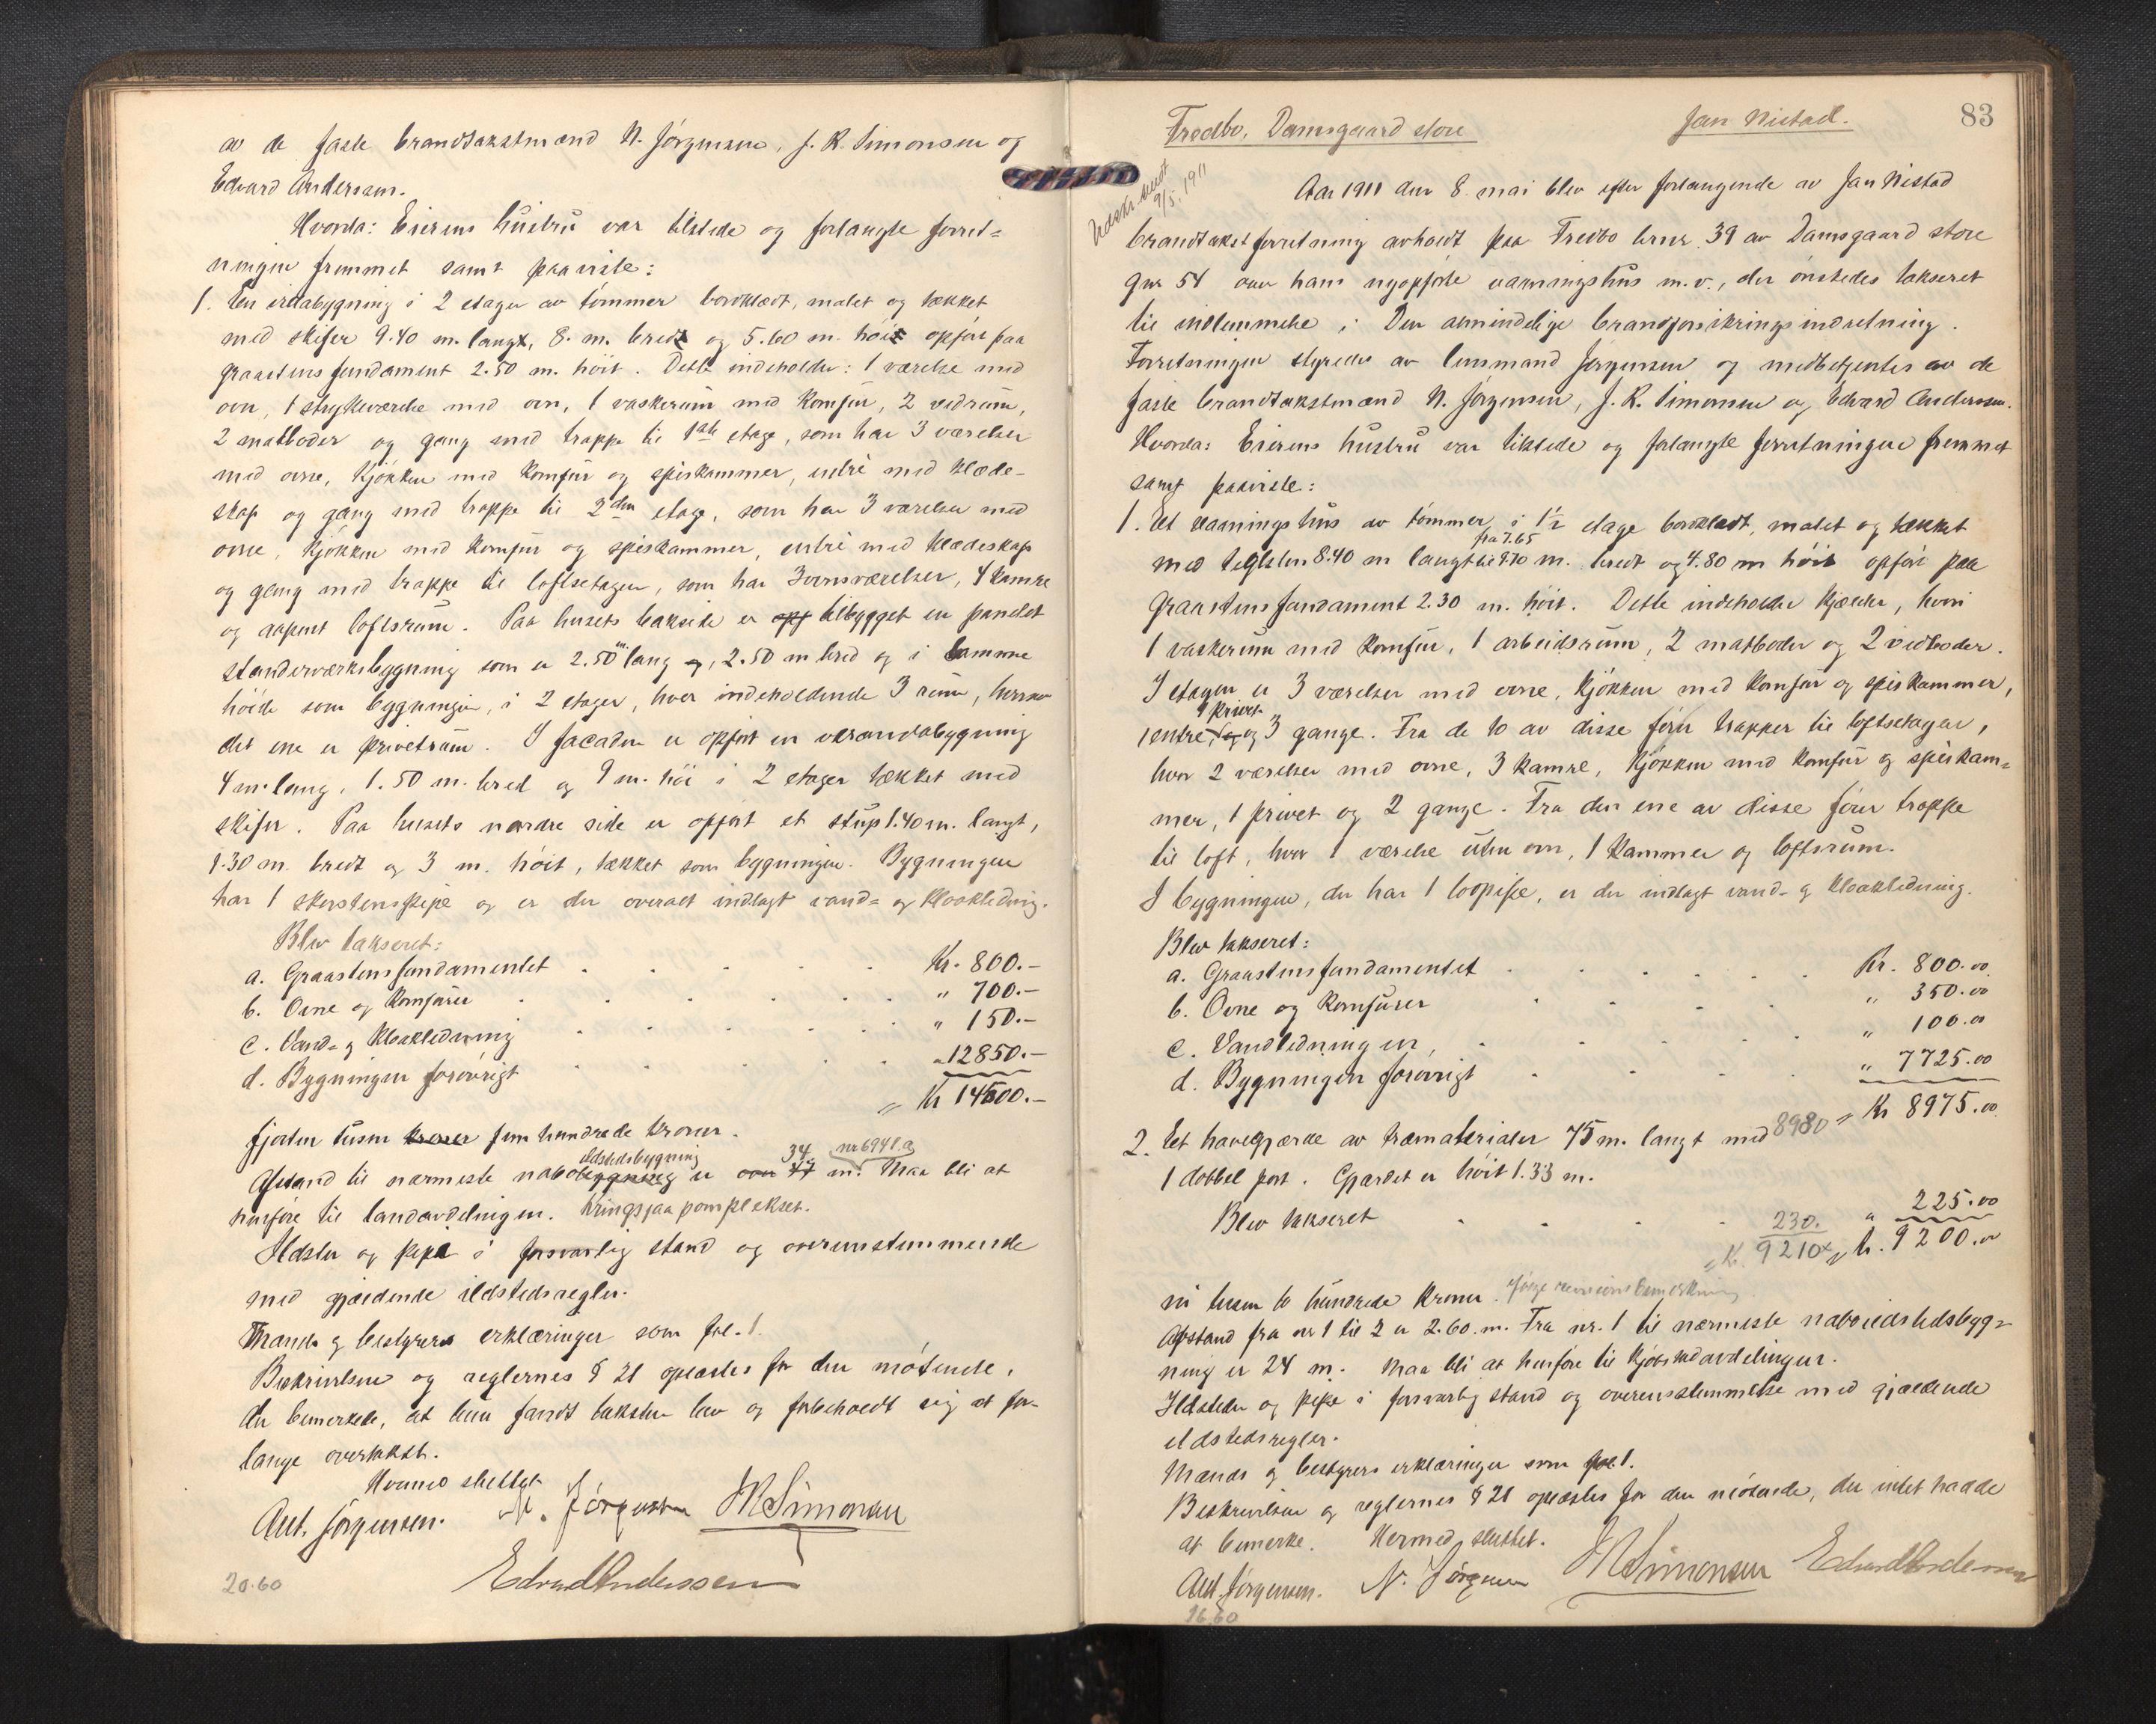 av de faste brandtakstmænd N. Jörgensen, J. R. Simonsen og
Edvard Anderssen.
Hvorda: Eierens hustru var tilstede og forlangte forret-
ningen fremmet samt paaviste:
1. En irdabygning i 2 etager av tömmer bordklædt, malet og tækket
med skifer 9.40 m. langt, 8. m. bredt og 5.60 m. höit opfört paa
graastensfundament 2.50 m. höit. Dette indeholder: 1 værelse med
ovn, 1 strykeværelse med ovn, 1 vaskerum med komfur, 2 vedrum,
2 matboder og gang med trappe til 1ste etage, som har 3 værelser
med ovne, kjökken med komfur og spiskammer, entré med klæde-
skap og gang med trappe til 2den etage, som har 3 værelser med
ovne, kjökken med komfur og spiskammer, entré med klædeskap
og gang med trappe til loftsetagen, som har 3 ovnsværelser, 4 kamre
og aapent loftsrum. Paa husets bakside er opf tilbygget en panelet
standerværksbygning som er 2.50 m. lang og, 2.50 m bred og i samme
höide som bygningen, i 2 etager, hver indeholdende 3 rum, hvorav
det ene er privetrum. I facaden er opfört en verandabygning
4 m. lang, 1.50 m. bred og 9 m. höi i 2 etager tækket med
skifer. Paa husets nordre side er opfört et skup 1.40 m. langt,
1.30 m. bredt og 3 m. höit, tækket som bygningen. Bygningen
har 1 skorstenspipe og er der overalt indlagt vand- og kloakledning.
Blev takseret:
a. Graastensfundamentet . . . . Kr. 800.-
b. Ovne og komfurer . . . . " 700.-
c. Vand- og kloakledning . . . . " 150.-
d. Bygningen forövrigt . . . . " 12850.-
= Kr 14500.-
fjorten tusen kroner fem hundrede kroner.
ildstedsbygning 34 nr 6941.a
Afstand til nærmeste nabobygning er over 47 m. Maa bli at
henföre til landavdelingen. Kringsjaa komplekset.
Ildsteder og pipe i forsvarlig stand og overensstemmende
med gjældende ildstedsregler.
Mands og bestyrers erklæringer som fol. 1.
Beskrivelsen og reglernes § 21 oplæstes for den mötende,
der bemerkede, at hun fandt taksten lav og forbeholdt sig at for-
lange overtakst.
Hermed sluttet
Ant. Jörgensen. N. Jörgensen J R Simonsen
Edvard Anderssen
20.60
83
Fredbo, Damsgaard store
Jan Nistad.
Utskr. sendt
9/5. 1911
Aar 1911 den 8. mai blev efter forlangende av Jan Nistad
brandtakstforretning avholdt paa Fredbo brnr. 39 av Damsgaard store
gnr 54 over hans nyopförte vaaningshus m.v., der önskedes takseret
til indlemmelse i Den almindelige brandforsikringsindretning.
Forretningen styredes av lensmand Jörgensen og medbetjentes av de
faste brandtakstmænd N. Jörgensen, J. R. Simonsen og Edvard Anderssen.
Hvorda: Eierens hustru var tilstede og forlangte forretningen fremmet
samt paaviste:
1. Et vaaningshus av tömmer i 1½ etage bordklædt, malet og tækket
fra 7.65
med teglsten 8.40 m langt til 8.70 m. bredt og 4.80 m höit opfört paa
graastensfundament 2.30 m. höit. Dette indeholder kjælder, hvori
1 vaskerum med komfur, 1 arbeidsrum, 2 matboder og 2 vedboder.
I etagen er 3 værelser med ovne, kjökken med komfur og spiskammer,
1 privet
1 entre, og og 3 gange. Fra de to av disse förer trapper til loftsetagen,
hvor 2 værelser med ovne, 3 kamre, kjökken med komfur og spiskam-
mer, 1 privet og 2 gange. Fra den ene av disse förer trappe
til loft, hvor 1 værelse uten ovn, 1 kammer og loftsrum.
I bygningen, der har 1 looppipe, er der indlagt vand- og kloakledning.
Blev takseret:
a. Graastensfundamentet . . . . Kr. 800.00
b. Ovne og komfurer . . . . " 350.00
c. Vandledningen, . . . . " 100.00
d. Bygningen forövrigt . . . . " 7725.00
8980 = Kr 8975.00
2. Et havegjærde av træmaterialer 75 m. langt med
1 dobbel port. Gjærdet er höit 1.33 m.
Blev takseret . . . . 230. " 225.00
= Kr. 9210 = Kr. 9200.00
ni tusen to hundrede kroner. Ifölge revisionsbemerkning
Afstand fra nr 1 til 2 er 2.60. m. Fra nr. 1 til nærmeste naboildstedsbygg-
ning er 24 m. Maa bli at henföre til kjöbstadavdelingen.
Ildsteder og pipe i forsvarlig stand og overensstemmelse med gjældende
ildstedsregler.
Mands og bestyrers erklæringer som fol 1.
Beskrivelsen og reglernes § 21 oplæstes for den mötende, der intet hadde
at bemerke. Hermed sluttet.
Ant. Jörgensen. N. Jörgensen J R Simonsen Edvard Anderssen
16.60